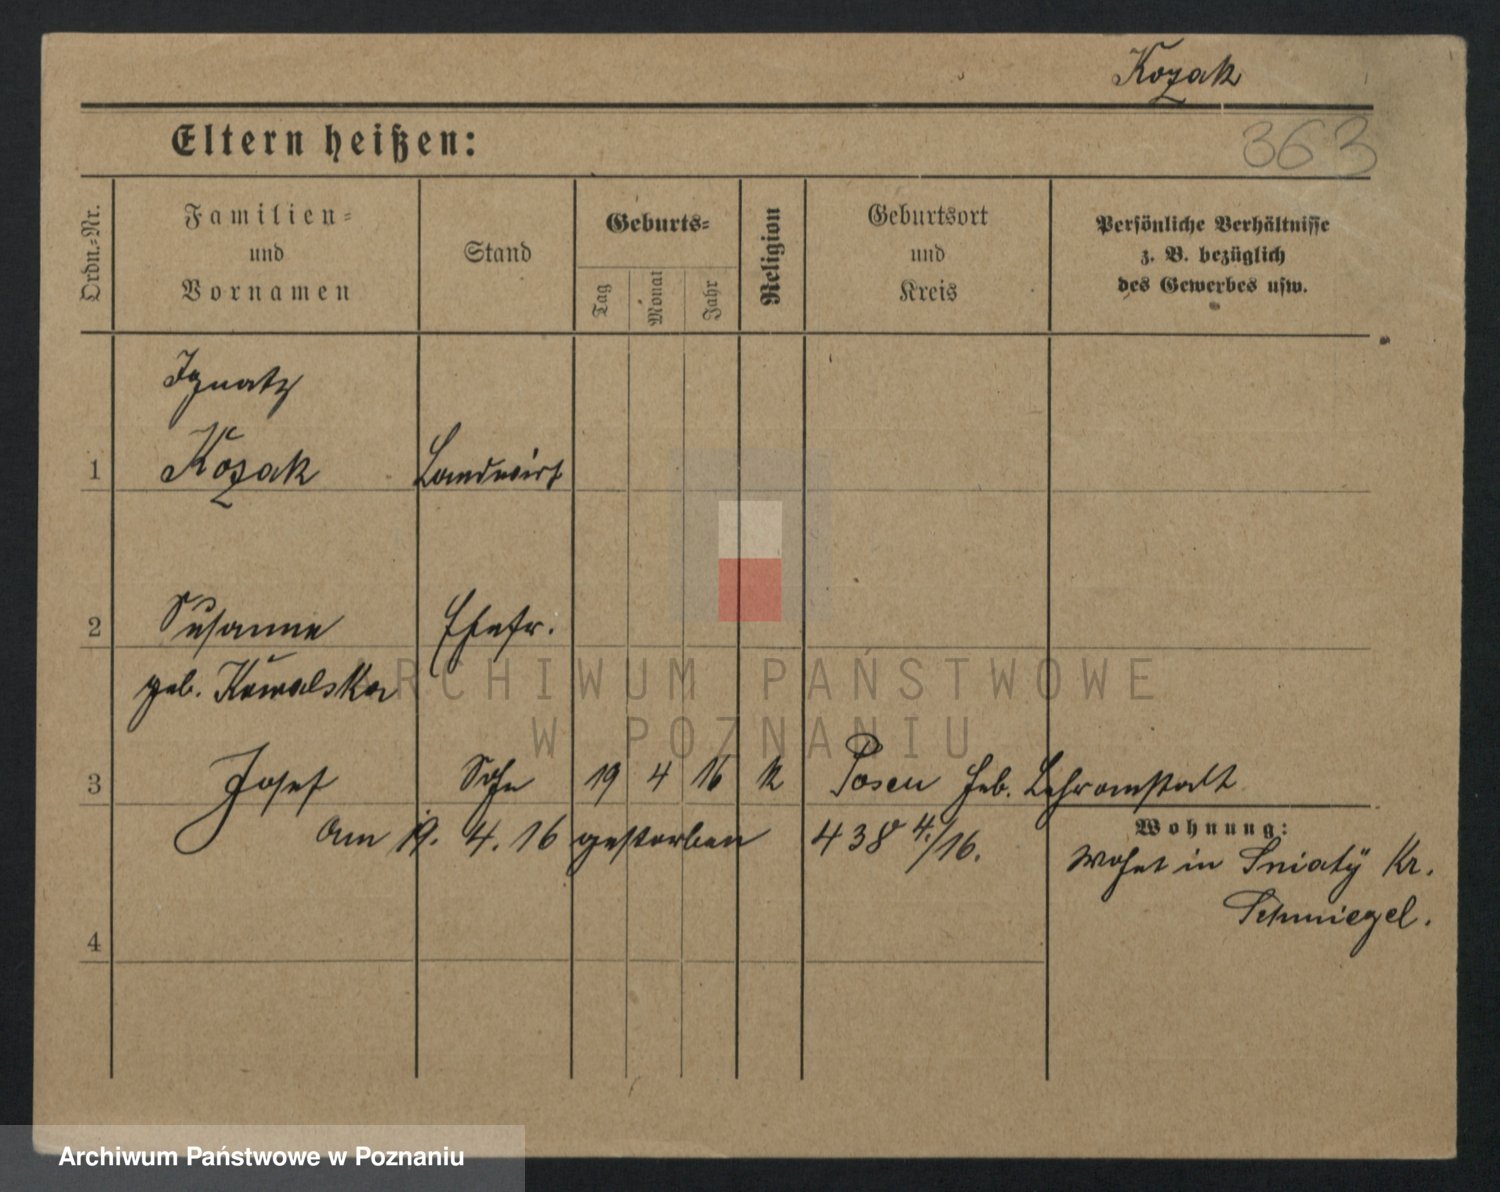 Kozak
Eltern heißen:
363
Ordn.-Nr.
Familien-
und
Vornamen
Stand
Geburts-
Tag
Monat
Jahr
Religion
Geburtsort
und
Kreis
Persönliche Verhältnisse
z. B. bezüglich
des Gewerbes usw.
Ignatz
1 Kozak Landwirt
2 Susanne Ehefr.
geb. Kowalska
ARCHIWUM PAŃSTWOWE
W POZNANIU
3 Josef Sohn 19 4 16 k Posen Heb. Lehranstalt
am 19. 4. 16 gestorben 438 4./16.
Wohnung:
wohnt in Sniaty Kr.
Schmiegel.
4
Archiwum Państwowe w Poznaniu